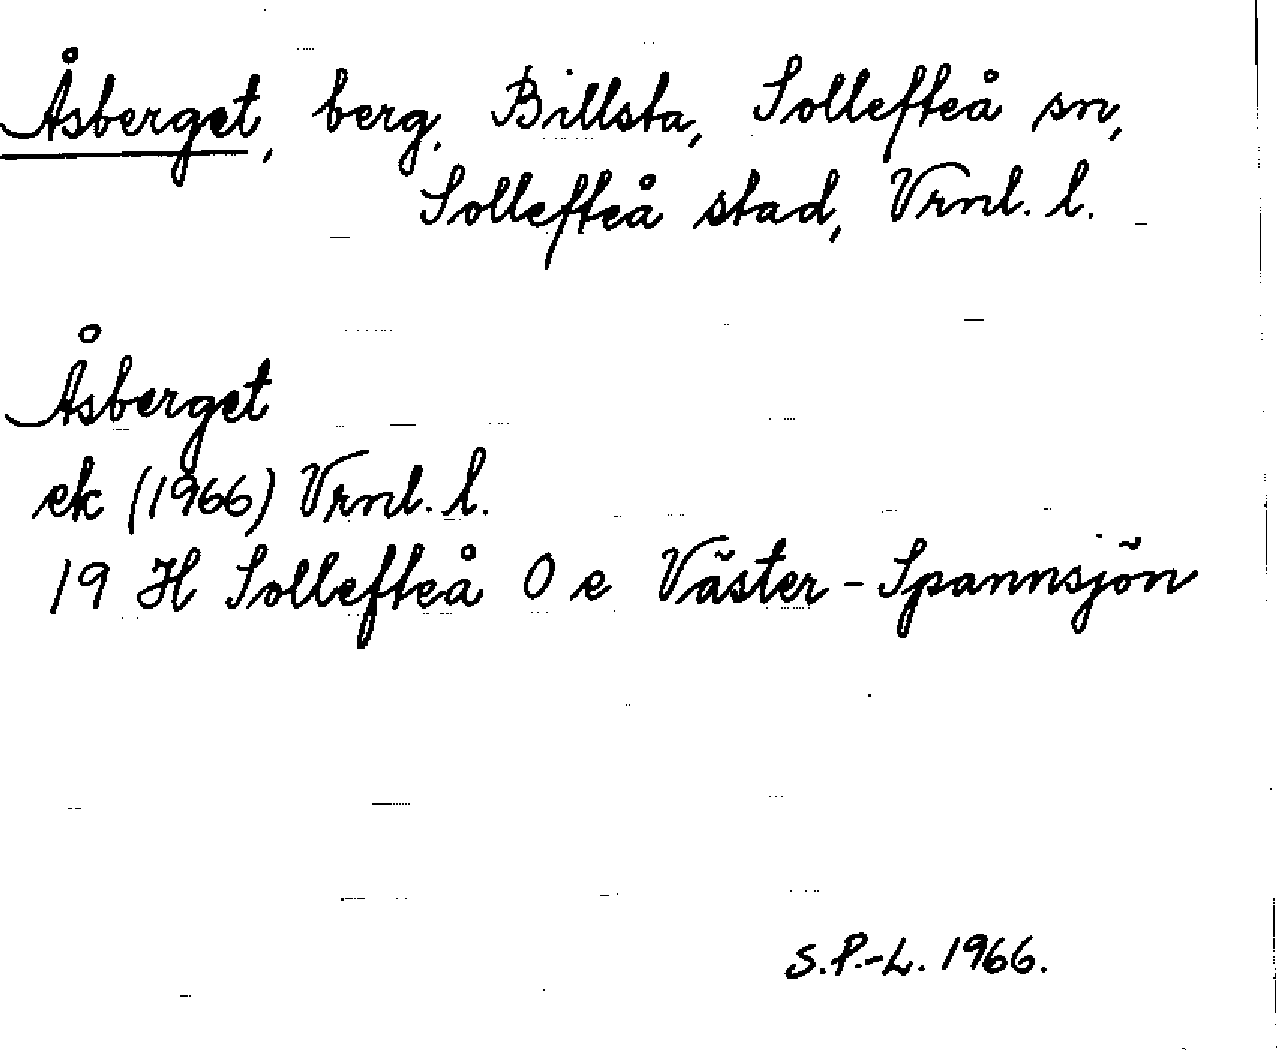 Åsberget, berg, Billsta, Sollefteå sn,
Sollefteå stad, Vrnl. l.
Åsberget
ek (1966) Vrnl. l.
19 H Sollefteå 0 e Väster-Spannsjön
S.P.-L. 1966.